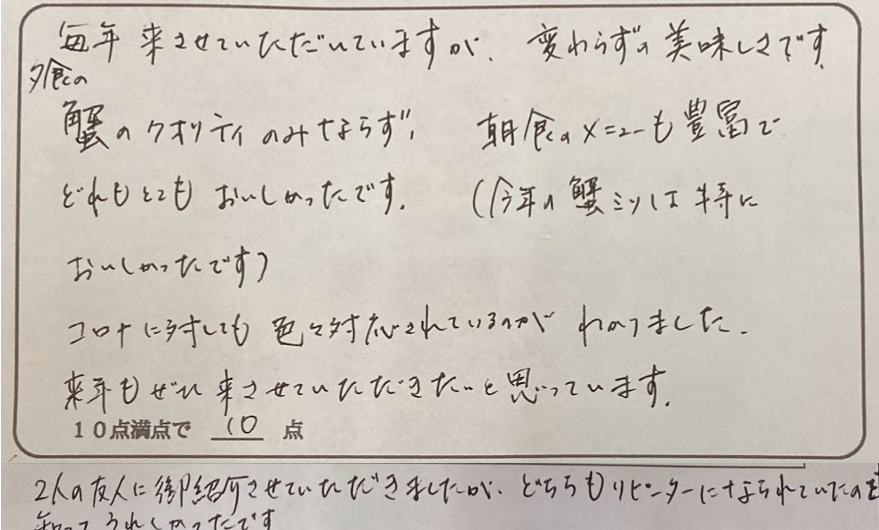 毎年来させていただいていますが、変わらずの美味しさです。
夕食の
蟹のクオリティのみならず、朝食のメニューも豊富で
どれもとてもおいしかったです。（今年の蟹ミソは特に
おいしかったです）
コロナに対しても色々対応されているのがわかりました。
来年もぜひ来させていただきたいと思っています。
10点満点で 10 点
2人の友人に御紹介させていただきましたが、どちらもリピーターになられていたのを
知ってうれしかったです